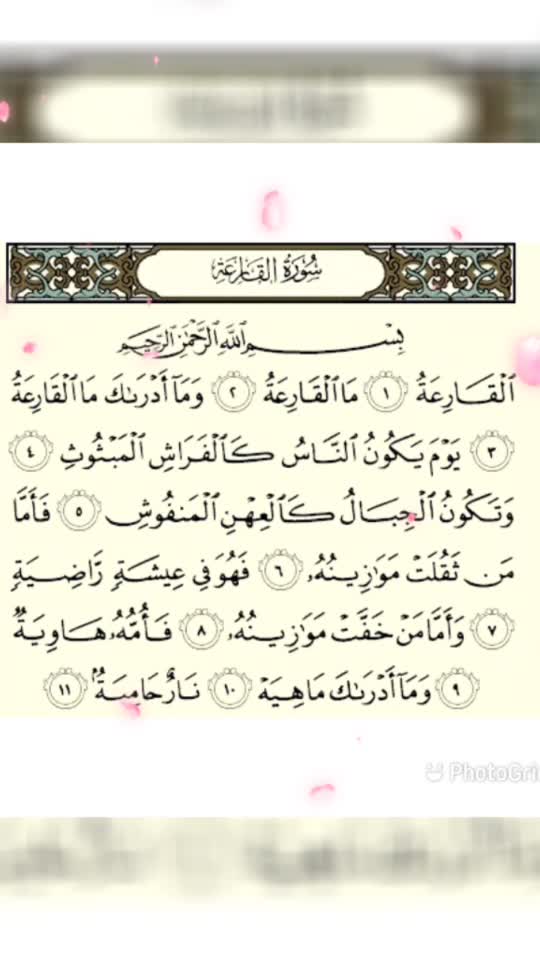 سُورَةُ القَارِعَةِ
بِسْمِ اللَّهِ الرَّحْمَٰنِ الرَّحِيمِ
ٱلْقَارِعَةُ ١ مَا ٱلْقَارِعَةُ ٢ وَمَآ أَدْرَىٰكَ مَا ٱلْقَارِعَةُ
٣ يَوْمَ يَكُونُ ٱلنَّاسُ كَٱلْفَرَاشِ ٱلْمَبْثُوثِ ٤
وَتَكُونُ ٱلْجِبَالُ كَٱلْعِهْنِ ٱلْمَنفُوشِ ٥ فَأَمَّا
مَن ثَقُلَتْ مَوَٰزِينُهُۥ ٦ فَهُوَ فِي عِيشَةٍ رَّاضِيَةٍ
٧ وَأَمَّا مَنْ خَفَّتْ مَوَٰزِينُهُۥ ٨ فَأُمُّهُۥ هَاوِيَةٌ
٩ وَمَآ أَدْرَىٰكَ مَا هِيَهْ ١٠ نَارٌ حَامِيَةٌۢ ١١
PhotoGri